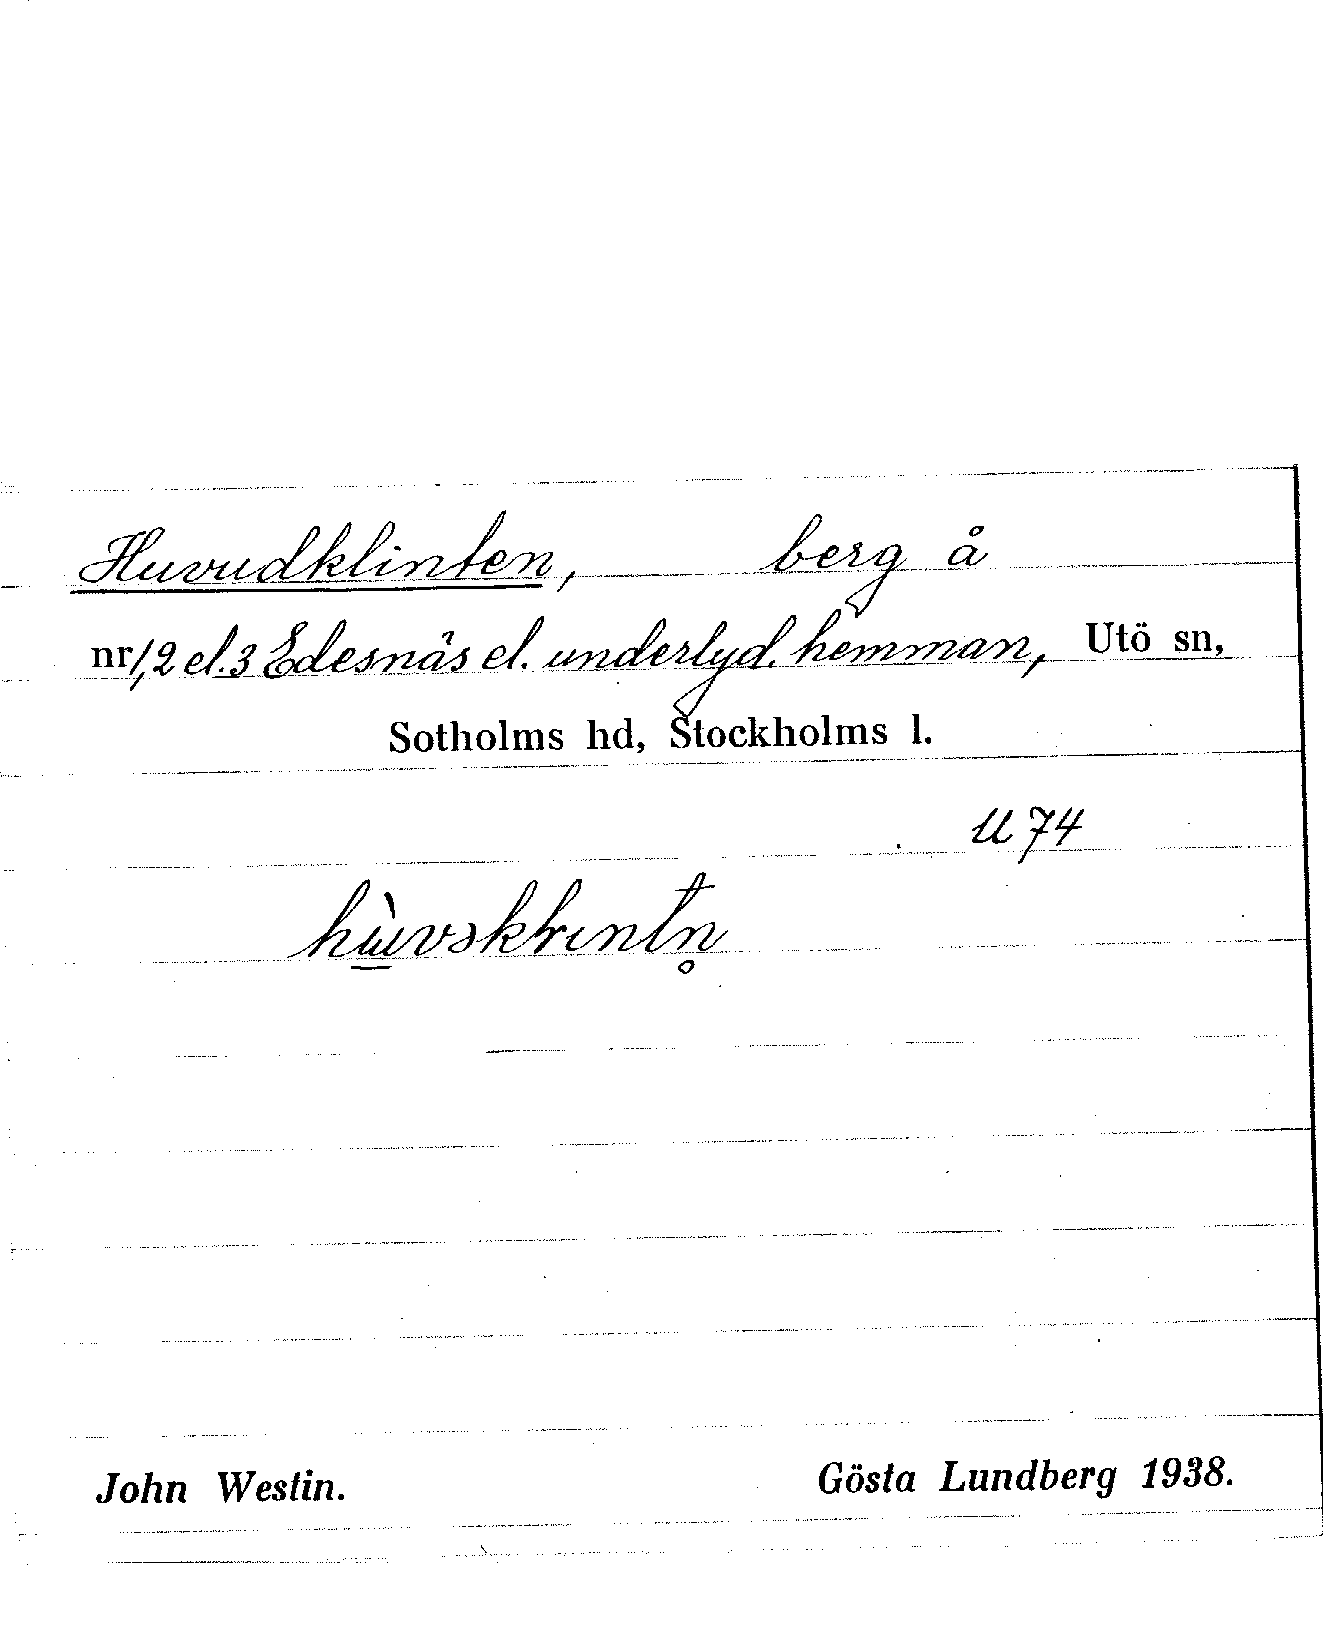 Huvudklinten, berg å
nr 1, 2 el. 3 Edesnäs el. underlyd. hemman, Utö sn,
Sotholms hd, Stockholms l.
U 74
John Westin. Gösta Lundberg 1938.